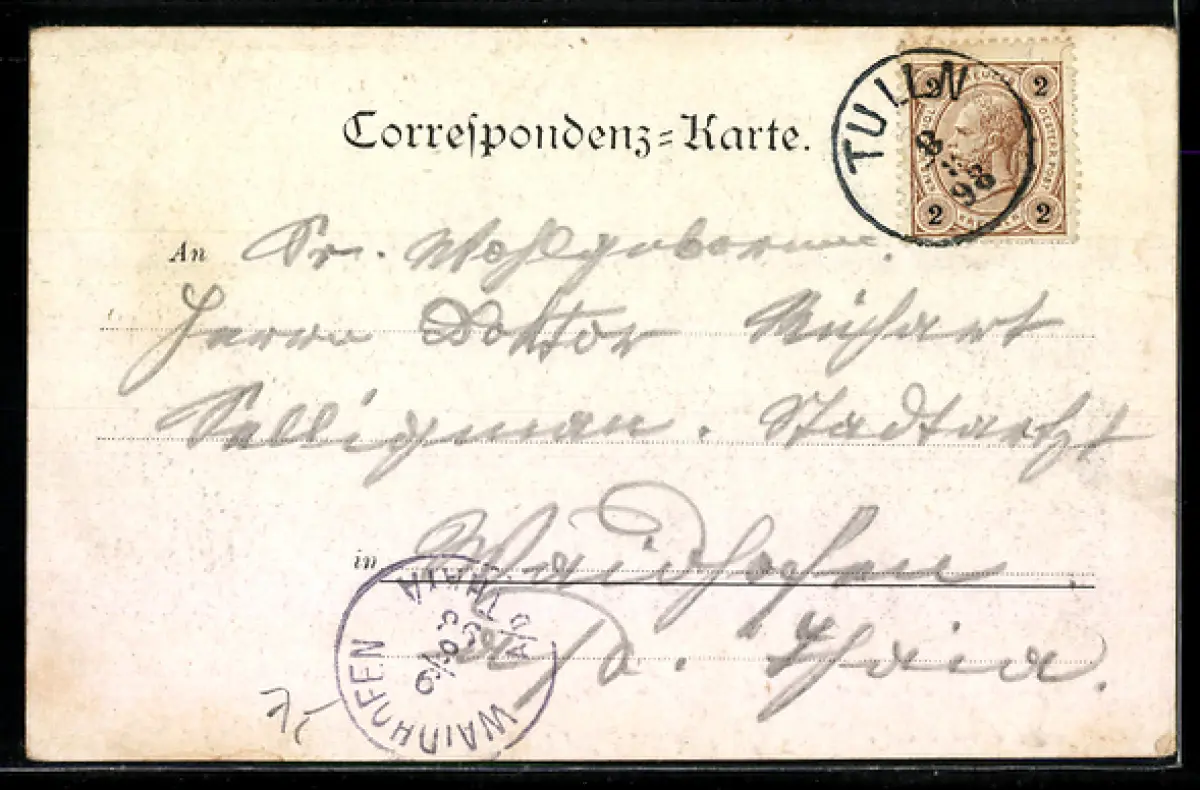 Correspondenz-Karte.
TULLN
8
98
2 2
2 2
An Sr. Wohlgeboren
Herrn Doktor Richart
Selligman. Stadtarzt
in Waidhofen
a/d. Thaia.
WAIDHOFEN A/D THAIA